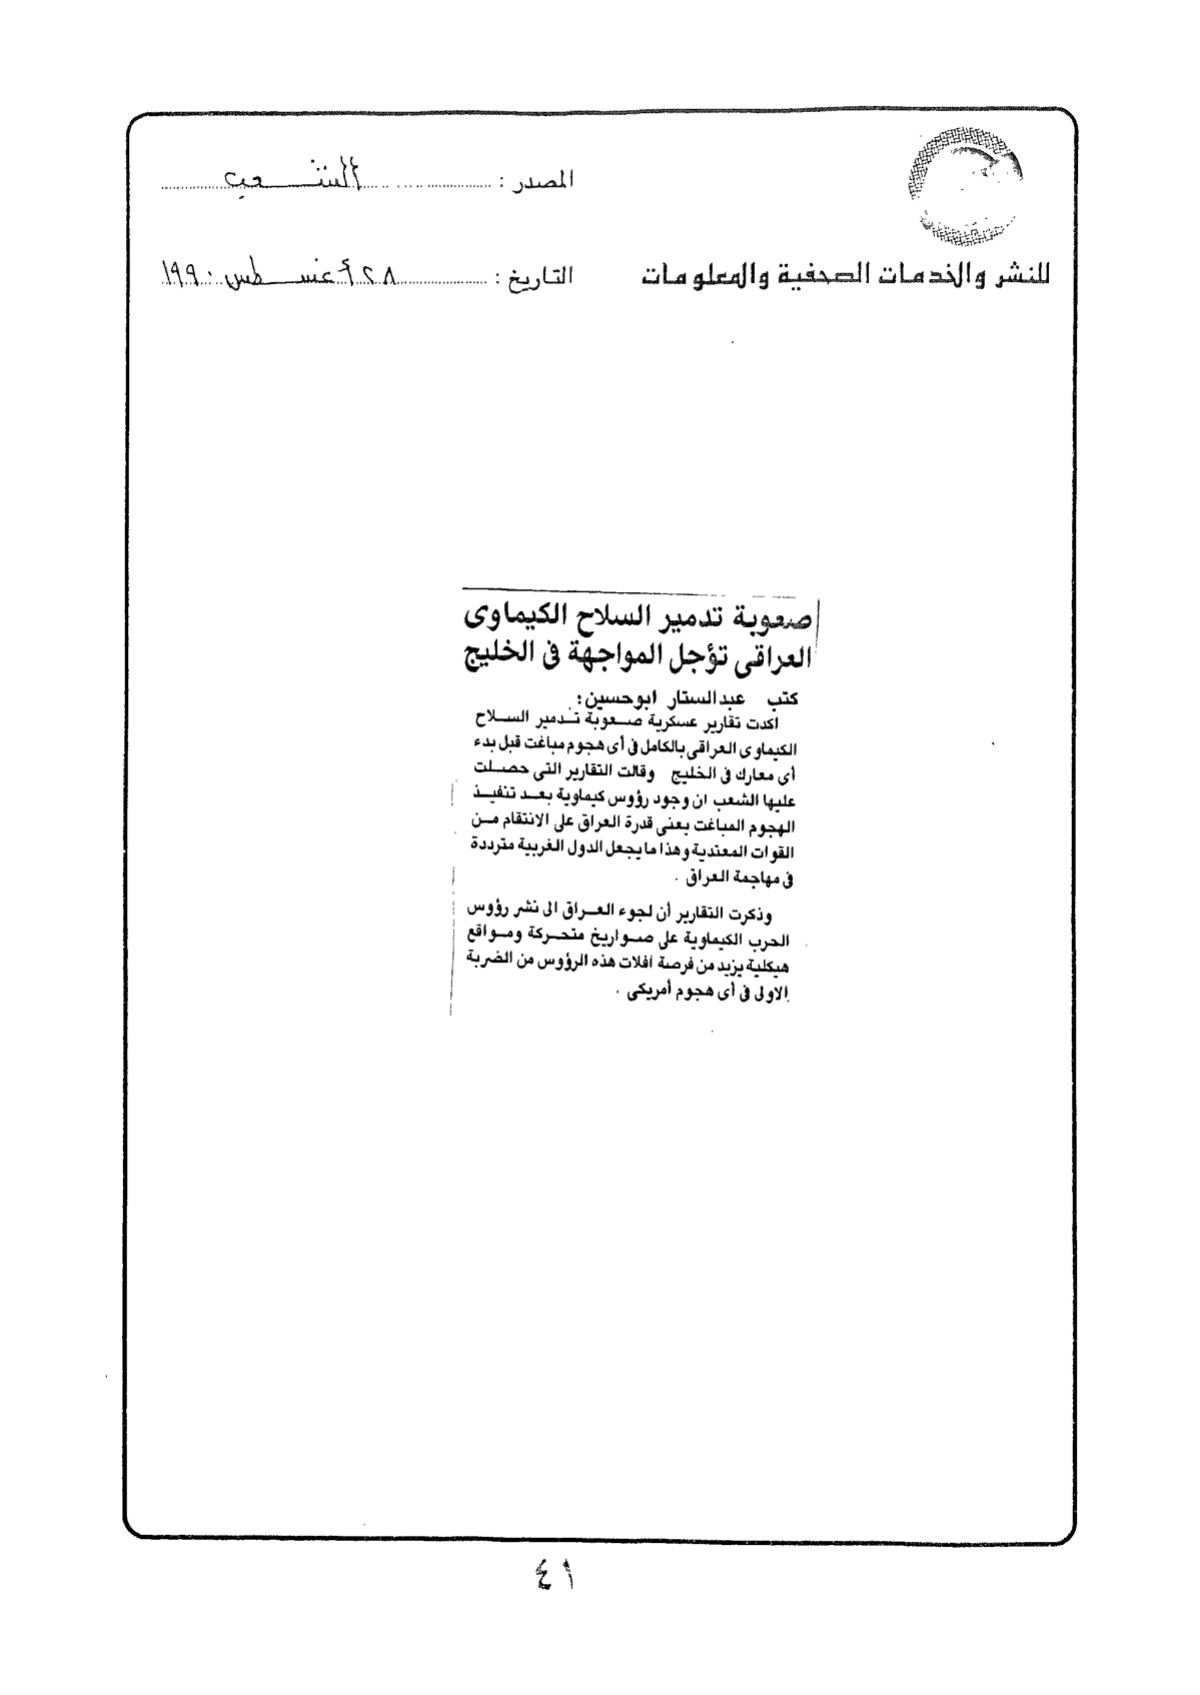 المصدر : الشعب
للنشر والخدمات الصحفية والمعلومات
التاريخ : ٢٨ أغسطس ١٩٩٠
صعوبة تدمير السلاح الكيماوى
العراقى تؤجل المواجهة فى الخليج
كتب عبدالستار ابوحسين :
اكدت تقارير عسكرية صعوبة تدمير السلاح
الكيماوى العراقى بالكامل فى أى هجوم مباغت قبل بدء
أى معارك فى الخليج وقالت التقارير التى حصلت
عليها الشعب ان وجود رؤوس كيماوية بعد تنفيذ
الهجوم المباغت يعنى قدرة العراق على الانتقام من
القوات المعتدية وهذا ما يجعل الدول الغربية مترددة
فى مهاجمة العراق .
وذكرت التقارير أن لجوء العراق الى نشر رؤوس
الحرب الكيماوية على صواريخ متحركة ومواقع
هيكلية يزيد من فرصة افلات هذه الرؤوس من الضربة
الاولى فى أى هجوم أمريكى .
٤١